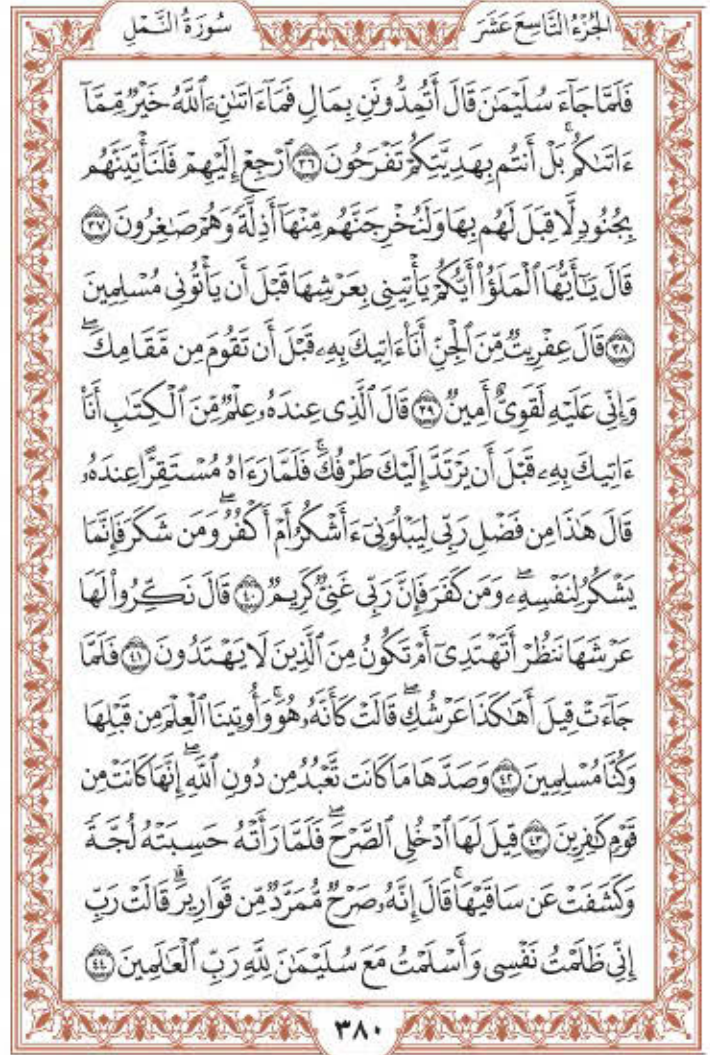 الجُزْءُ التَّاسِعَ عَشَرَ سُورَةُ النَّمْلِ
فَلَمَّا جَآءَ سُلَيْمَـٰنَ قَالَ أَتُمِدُّونَنِ بِمَالٍ فَمَآ ءَاتَىٰنِۦَ ٱللَّهُ خَيْرٌ مِّمَّآ
ءَاتَىٰكُمۚ بَلْ أَنتُم بِهَدِيَّتِكُمْ تَفْرَحُونَ ٣٦ ٱرْجِعْ إِلَيْهِمْ فَلَنَأْتِيَنَّهُم
بِجُنُودٍ لَّا قِبَلَ لَهُم بِهَا وَلَنُخْرِجَنَّهُم مِّنْهَآ أَذِلَّةً وَهُمْ صَـٰغِرُونَ ٣٧
قَالَ يَـٰٓأَيُّهَا ٱلْمَلَؤُاْ أَيُّكُمْ يَأْتِينِى بِعَرْشِهَا قَبْلَ أَن يَأْتُونِى مُسْلِمِينَ
٣٨ قَالَ عِفْرِيتٌ مِّنَ ٱلْجِنِّ أَنَا۠ ءَاتِيكَ بِهِۦ قَبْلَ أَن تَقُومَ مِن مَّقَامِكَۖ
وَإِنِّى عَلَيْهِ لَقَوِىٌّ أَمِينٌ ٣٩ قَالَ ٱلَّذِى عِندَهُۥ عِلْمٌ مِّنَ ٱلْكِتَـٰبِ أَنَا۠
ءَاتِيكَ بِهِۦ قَبْلَ أَن يَرْتَدَّ إِلَيْكَ طَرْفُكَۚ فَلَمَّا رَءَاهُ مُسْتَقِرًّا عِندَهُۥ
قَالَ هَـٰذَا مِن فَضْلِ رَبِّى لِيَبْلُوَنِىٓ ءَأَشْكُرُ أَمْ أَكْفُرُۖ وَمَن شَكَرَ فَإِنَّمَا
يَشْكُرُ لِنَفْسِهِۦۖ وَمَن كَفَرَ فَإِنَّ رَبِّى غَنِىٌّ كَرِيمٌ ٤٠ قَالَ نَكِّرُواْ لَهَا
عَرْشَهَا نَنظُرْ أَتَهْتَدِىٓ أَمْ تَكُونُ مِنَ ٱلَّذِينَ لَا يَهْتَدُونَ ٤١ فَلَمَّا
جَآءَتْ قِيلَ أَهَـٰكَذَا عَرْشُكِۖ قَالَتْ كَأَنَّهُۥ هُوَۚ وَأُوتِينَا ٱلْعِلْمَ مِن قَبْلِهَا
وَكُنَّا مُسْلِمِينَ ٤٢ وَصَدَّهَا مَا كَانَت تَّعْبُدُ مِن دُونِ ٱللَّهِۖ إِنَّهَا كَانَتْ مِن
قَوْمٍ كَـٰفِرِينَ ٤٣ قِيلَ لَهَا ٱدْخُلِى ٱلصَّرْحَۖ فَلَمَّا رَأَتْهُ حَسِبَتْهُ لُجَّةً
وَكَشَفَتْ عَن سَاقَيْهَاۚ قَالَ إِنَّهُۥ صَرْحٌ مُّمَرَّدٌ مِّن قَوَارِيرَۗ قَالَتْ رَبِّ
إِنِّى ظَلَمْتُ نَفْسِى وَأَسْلَمْتُ مَعَ سُلَيْمَـٰنَ لِلَّهِ رَبِّ ٱلْعَـٰلَمِينَ ٤٤
٣٨٠